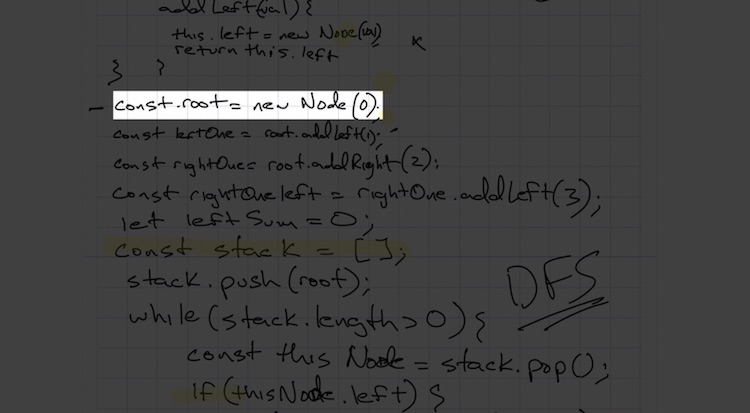 addLeft(val) {
this.left = new Node(val)
return this.left
} }
- const.root = new Node(0);
const leftOne = root.addLeft(1);
const rightOne = root.addRight(2);
const rightOneleft = rightOne.addLeft(3);
let leftSum = 0;
const stack = [];
stack.push(root);
DFS
while (stack.length > 0) {
const this Node = stack.pop();
if (thisNode.left) {